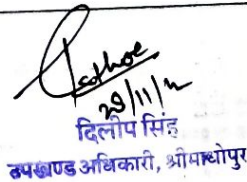 28/11/
दिलीप सिंह
उपखण्ड अधिकारी, श्रीमाधोपुर